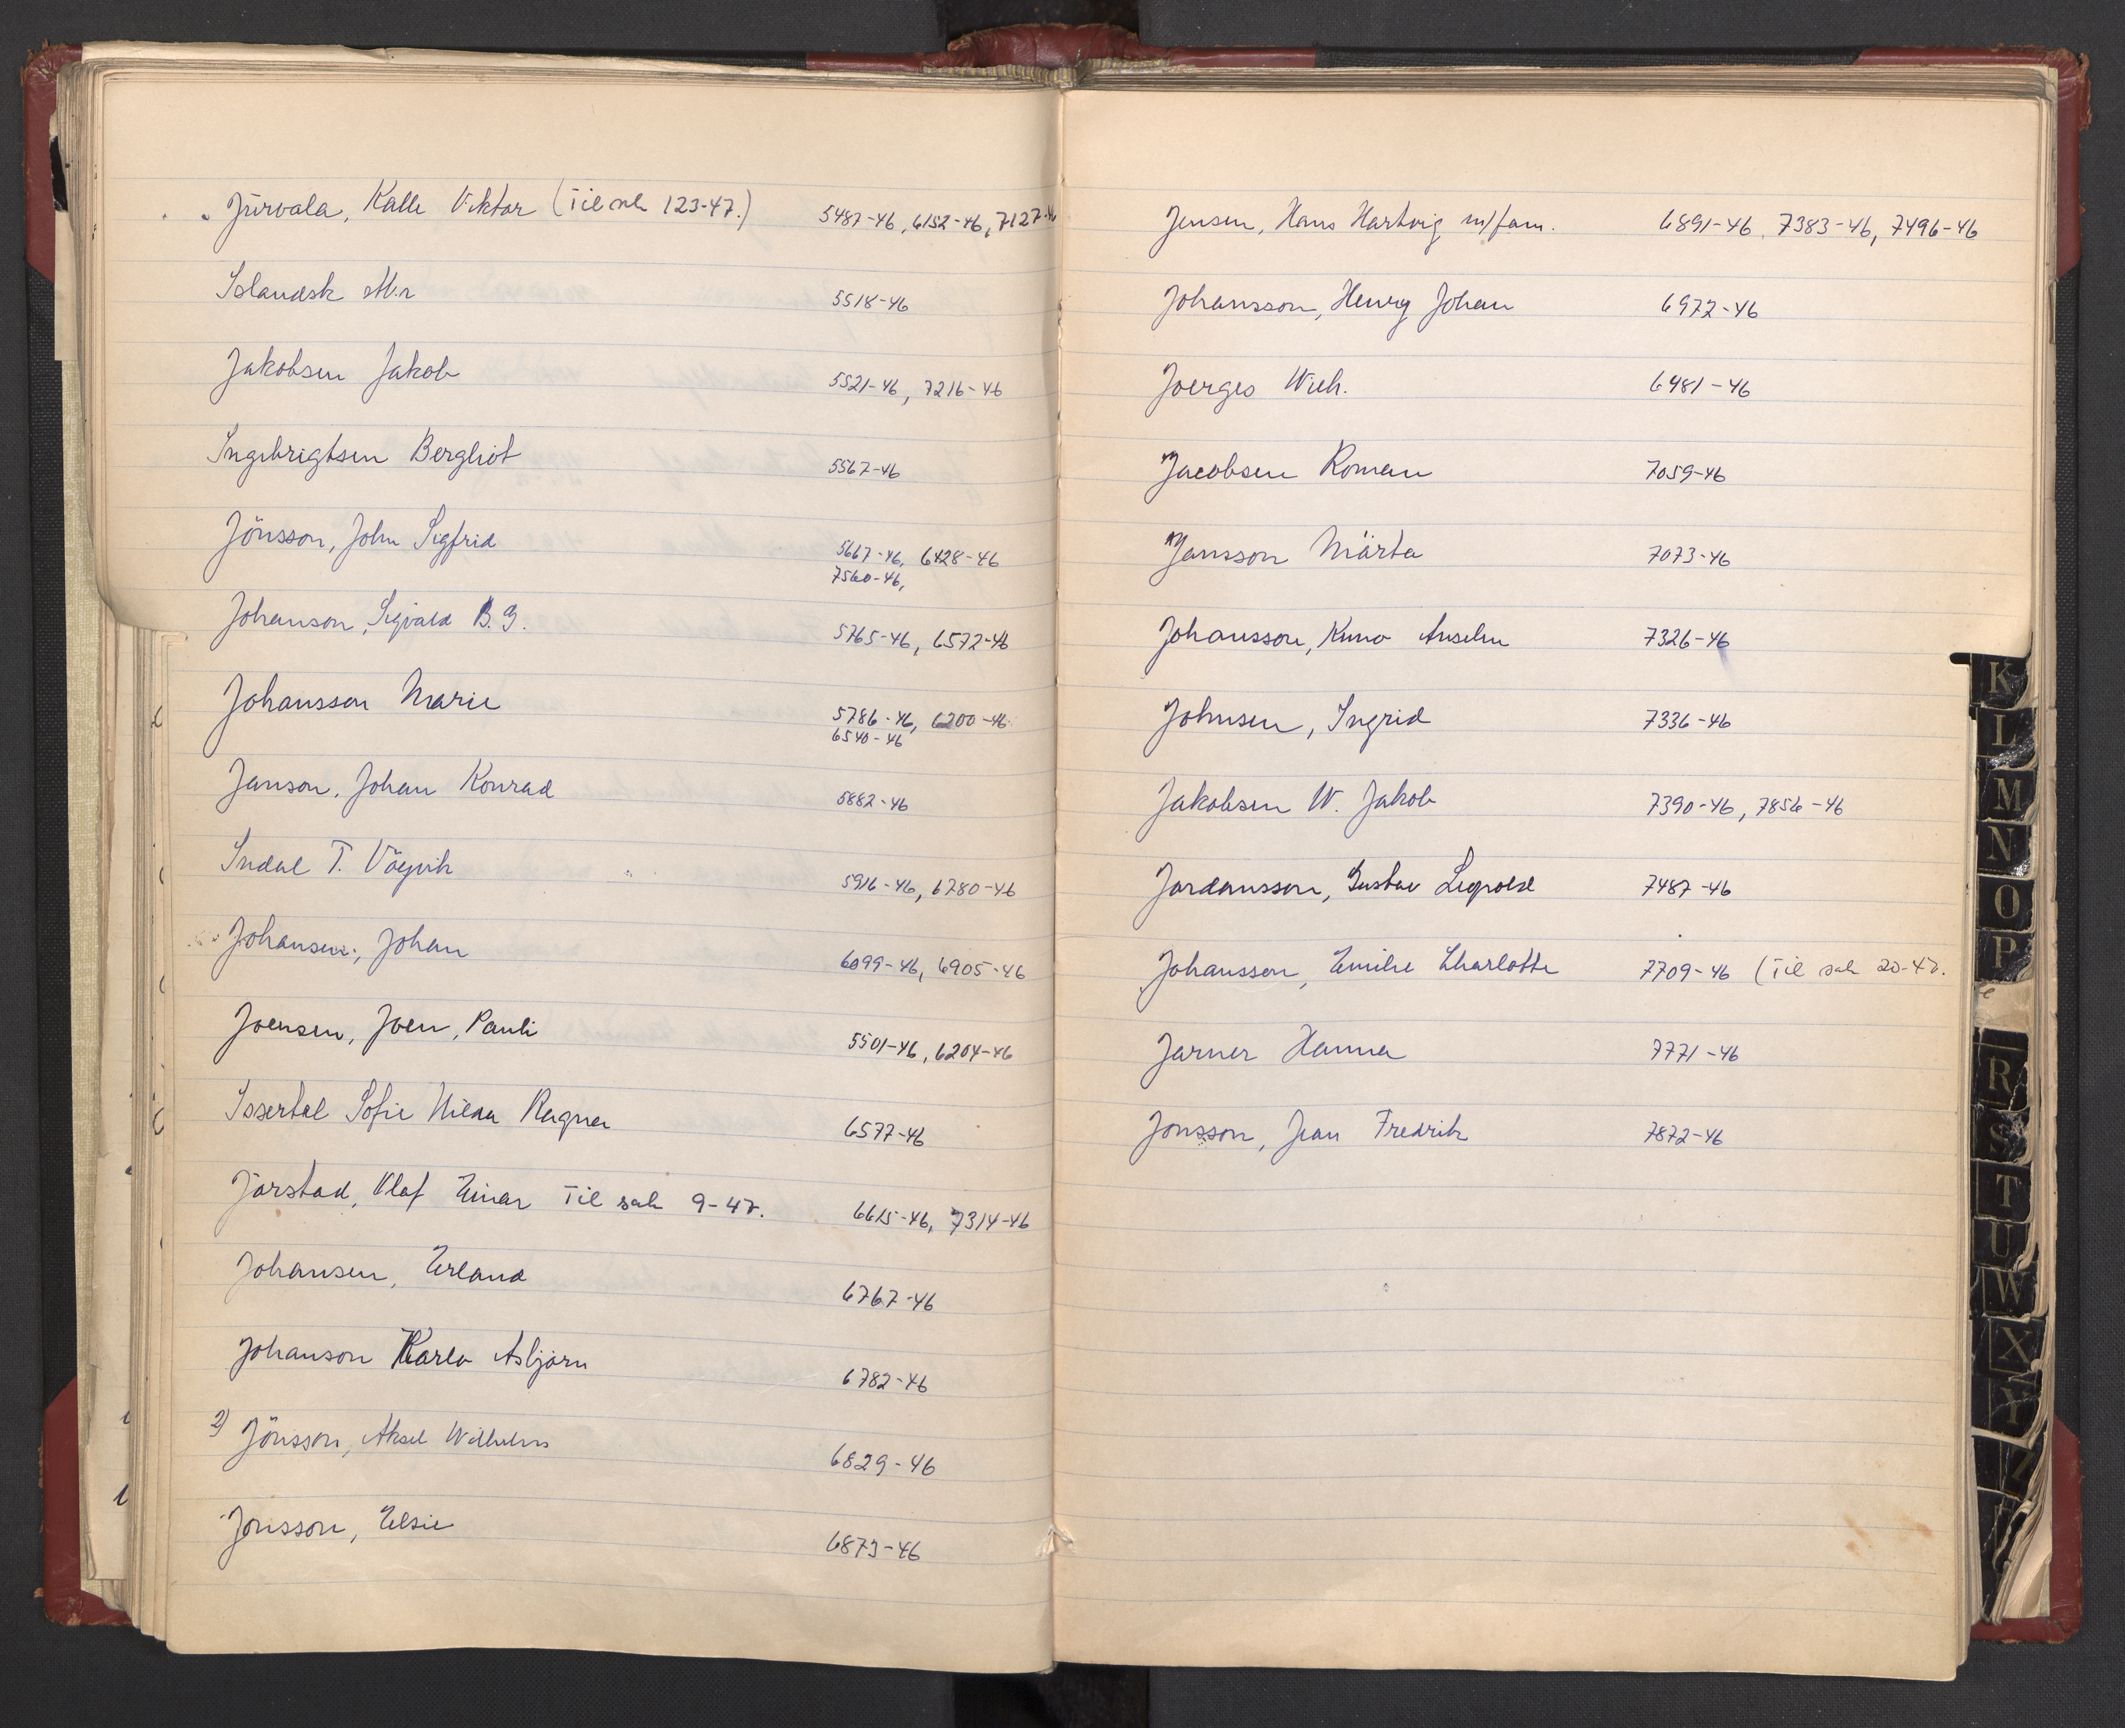 Jürvala, Kalle Viktor (Til sak 123-47.) 5487-46, 6152-46, 7127-46
Islandsk
5518-46
Jakobsen Jakob 5521-46, 7216-46
Ingebrigtsen Bergliot 5567-46
Jönsson, John Sigfrid 5667-46, 6428-46
7560-46,
Johanson, Sigvald B. G. 5765-46, 6572-46
Johansson Marie 5786-46, 6200-46
6540-46
Janson, Johan Konrad 5882-46
Indal T. 5916-46, 6780-46
Johansen, Johan 6099-46, 6905-46
Joensen, Joen, Pauli 5501-46, 6204-46
Issertal Sofie Hilda Ragna 6577-46
Jårstad, Olaf Einar Til sak 9-47. 6615-46, 7314-46
Johansen, Erland 6767-46
Johanson Karlo Asbjørn 6782-46
2) Jönsson, Aksel Wilhelm 6829-46
Jonsson, Elsie 6873-46
Jensen, Hans Hartvig m/fam. 6891-46, 7383-46, 7496-46
Johansson, Henry Johan 6972-46
Joerges Wilh. 6981-46
Jacobsen Roman 7059-46
Jansson Märta 7073-46
Johansson, Kuno Anselm 7326-46
Johnsen, Ingrid 7336-46
Jakobsen W. Jakob 7390-46, 7856-46
Jordansson, Gustav Leopold 7487-46
Johansson, Emilie Charlotte 7709-46 (Til sak 20-47.
Jarner Hanna 7771-46
Jonsson, Jean Fredrik 7872-46
K
L
M
N
O
P
R
S
T
U
W
X
Y